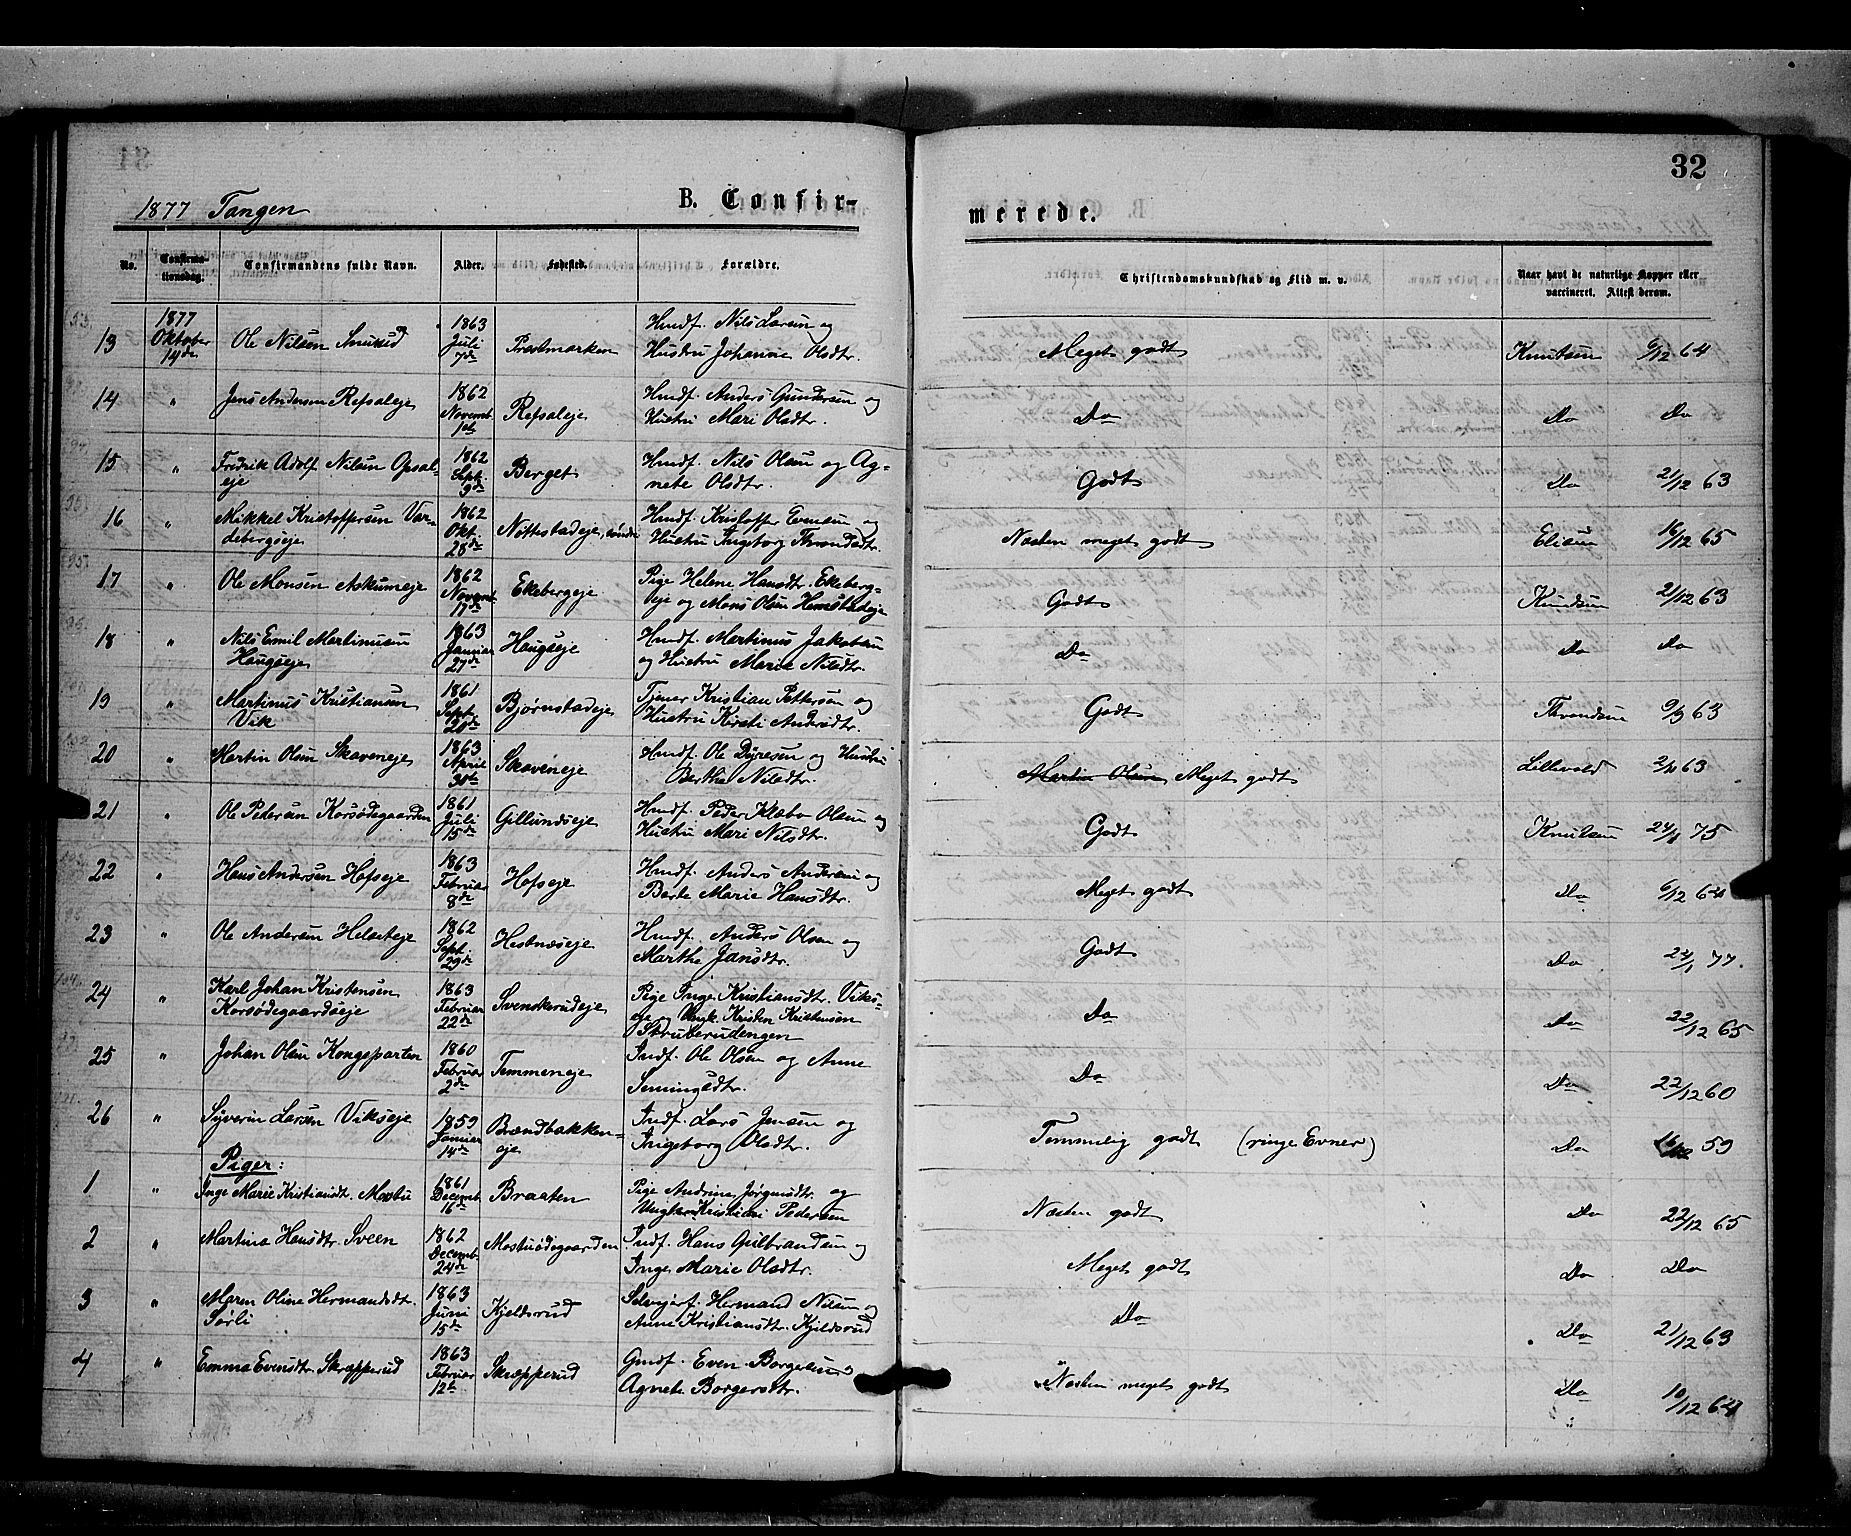 32
1877 Tangen
B. Confir-
merede.
No.
Confirma-
tionsdag.
Confirmandens fulde Navn.
Alder.
Fødested.
Forældre.
Christendomskundskab og Flid m. v.
Naar havt de naturlige Kopper eller
vaccineret. Attest derom.
13 1877 Oktober 14de Ole Nilsen 1863 Juli 7de Prestmarken Hmdf. Nils Larsen og Hustru Johanne Olsdtr. Meget godt Knutsen 6/12 64
14 " Jens Andersen Refsaleje 1862 Novemb. 1ste Refsaleje Hmdf. Anders Gundersen og Hustru Mari Olsdtr. Do Do Do
15 " Fredrik Adolf Nilsen Opsal-eje 1862 Sept. 9de Berget Hmdf. Nils Olsen og Agnete Olsdtr. Godt Do 21/12 63
16 " Mikkel Kristoffersen Var-debergseje 1862 Okt. 28de Nottestadeje, søndre Hmdf. Kristoffer Evensen og Hustru Ingeborg Throndsdtr. Næsten meget godt Eliesen 16/12 65
17 " Ole Monsen Askumeje 1862 Novemb. 17de Ekebergeje Pige Helene Hansdtr. Ekeberg-eje og Mons Olsen Hemstadeje Godt Knudsen 21/12 63
18 " Nils Emil Martinusen Haugseje 1863 Januar 27de Haugseje Hmdf. Martinus Jakobsen og Hustru Marie Nilsdtr. Do Do Do
19 " Martinus Kristiansen Vik 1861 Sept. 20de Bjørnstadeje Tjener Kristian Pettersen og Hustru Kirsti Andersdtr. Godt Throndsen 9/9 63
20 " Martin Olsen Skaveneje 1863 April 30te Skaveneje Hmdf. Ole Dyresen og Hustru Berthe Nilsdtr. Martin Olsen Meget godt Lillevold 63
21 " Ole Pedersen Korsødegaarden 1861 Juli 15de Gillundseje Hmdf. Peder Klæbo Olsen og Hustru Mari Nilsdtr. Godt Knutsen 75
22 " Hans Andersen Hofseje 1863 Februar 8de Hofseje Hmdf. Anders Andersen og Berte Marie Hansdtr. Meget godt Do 6/12 64
23 " Ole Andersen Helseteje 1862 Sept. 29de Hestnæseje Hmdf. Anders Olsen og Marthe Jansdtr. Godt Do 77.
24 " Karl Johan Kristensen Korsødegaardseje 1863 Februar 22de Svenskerudeje Pige Inge Kristiansdtr. Viks-eje og Ungk. Kristen Kristensen Skruberudengen Do Do 22/12 65
25 " Johan Olsen Kongsparten 1860 Februar 2de Temmeneje Indf. Ole Olsen og Anne Semingsdtr. Do Do 22/12 60
26 " Syverin Larsen Vikseje 1859 Januar 14de Brændbakken-eje Indf. Lars Jensen og Ingeborg Olsdtr. Temmelig godt (ringe Evner) Do 59
Piger:
1 " Inge Marie Kristiansdt. Mostu 1861 Decemb. 16de Braaten Pige Andrine Jørgensdtr. og Ungkar Kristian Pedersen Næsten godt Do 22/12 65
2 " Martina Hansdtr. Sveen 1862 Decemb. 24de Mostuødegaarden Indf. Hans Gulbrandsen og Inge Marie Olsdtr. Meget godt Do Do
3 " Maren Oline Hermandsdt. Sørli 1863 Juni 15de Kjeldsrud Selvejerf. Hermand Nilsen og Anne Kristiansdtr. Kjeldsrud Do Do 21/12 63
4 " Emma Evensdtr. Skræpperud 1863 Februar 12te Skræpperud Gmdf. Even Borgersen Agnete Borgersdtr. Næsten meget godt Do 10/12 64